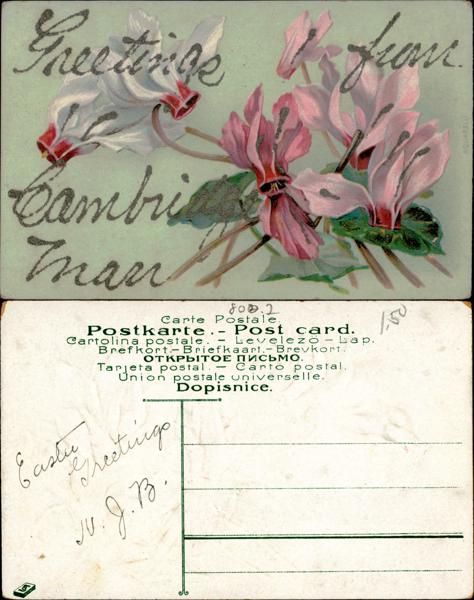 Greetings from
Cambridge
Mass
802.2
1.50
Carte Postale.
Postkarte.- Post card.
Cartolina postale. – Levelező – Lap.
Brefkort.-Briefkaart.-Brevkort.
ОТКРЫТОЕ ПИСЬМО.
Tarjeta postal. – Carto postal.
Union postale universelle.
Dopisnice.
Easter
Greetings
N. J. B.